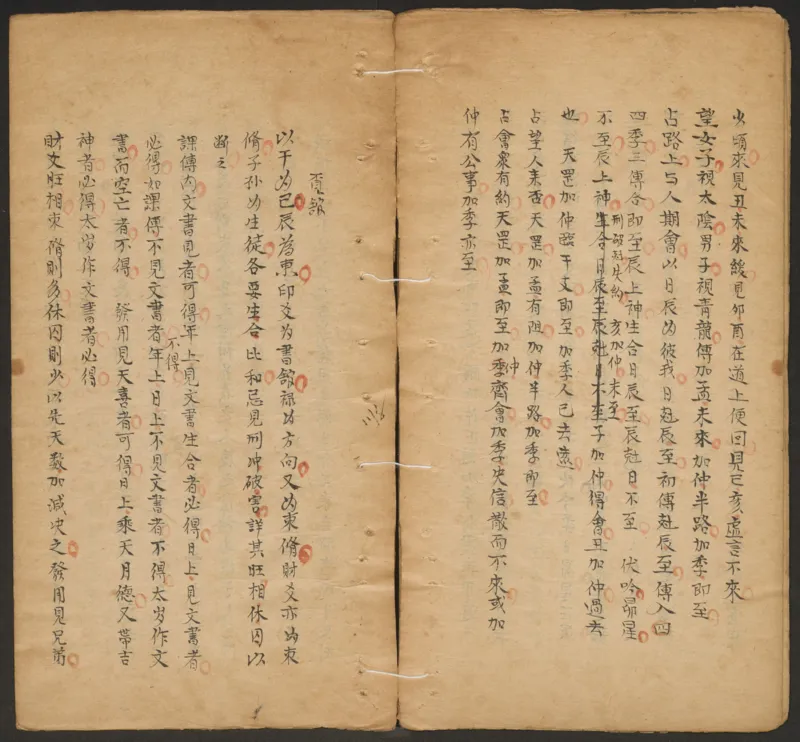 少頃來見丑未來緩見卯酉在道上便回見巳亥虛言不來
望女子視太陰男子視青龍傳加孟未來加仲半路加季即至
占路上与人期會以日辰為彼我日尅辰至初傳尅辰至傳入四
四季三傳合即至辰上神生合日辰至辰尅日不至 伏吟昴星
刑 失約 亥加仲未至
不至辰上神生合日辰至辰尅日不至子加仲得會丑加仲過去
也 天罡加仲 干丈即至加季人已去
占望人來否天罡加孟有阻加仲半路加季即至
占會衆有約天罡加孟即至加季齊會加季失信散而不來或加
仲
仲有公事加季亦至
賓館
以干為己辰為東印爻為書館祿為方向又為束脩財爻亦為束
脩子孫為生徒各要生合比和忌見刑冲破害詳其旺相休囚以
断之
課傳內文書見者可得年上見文書生合者必得日上見文書者
不得
必得如課傳不見文書者年上日上不見文書者不得太岁作文
書而空亡者不得 發用見天喜者可得日上乘天月德又帶吉
神者必得太岁作文書者必得
財爻旺相束脩則多休囚則少以先天數加減决之發用見兄弟